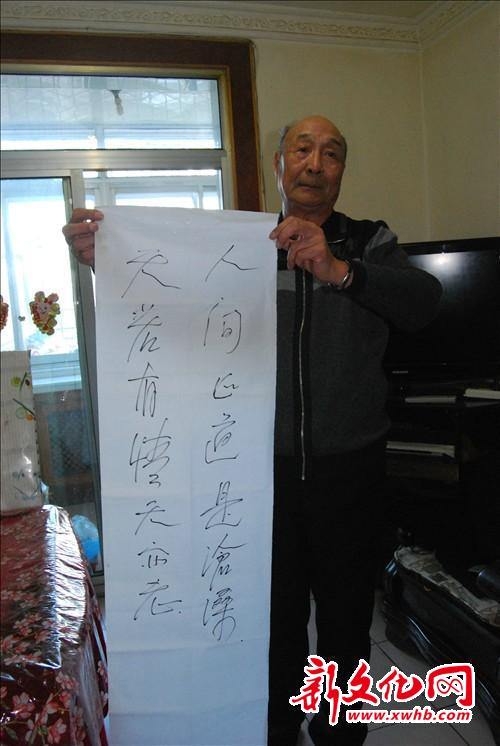 人间正道是滄桑
天若有情天亦老
新文化网
www.xwhb.com